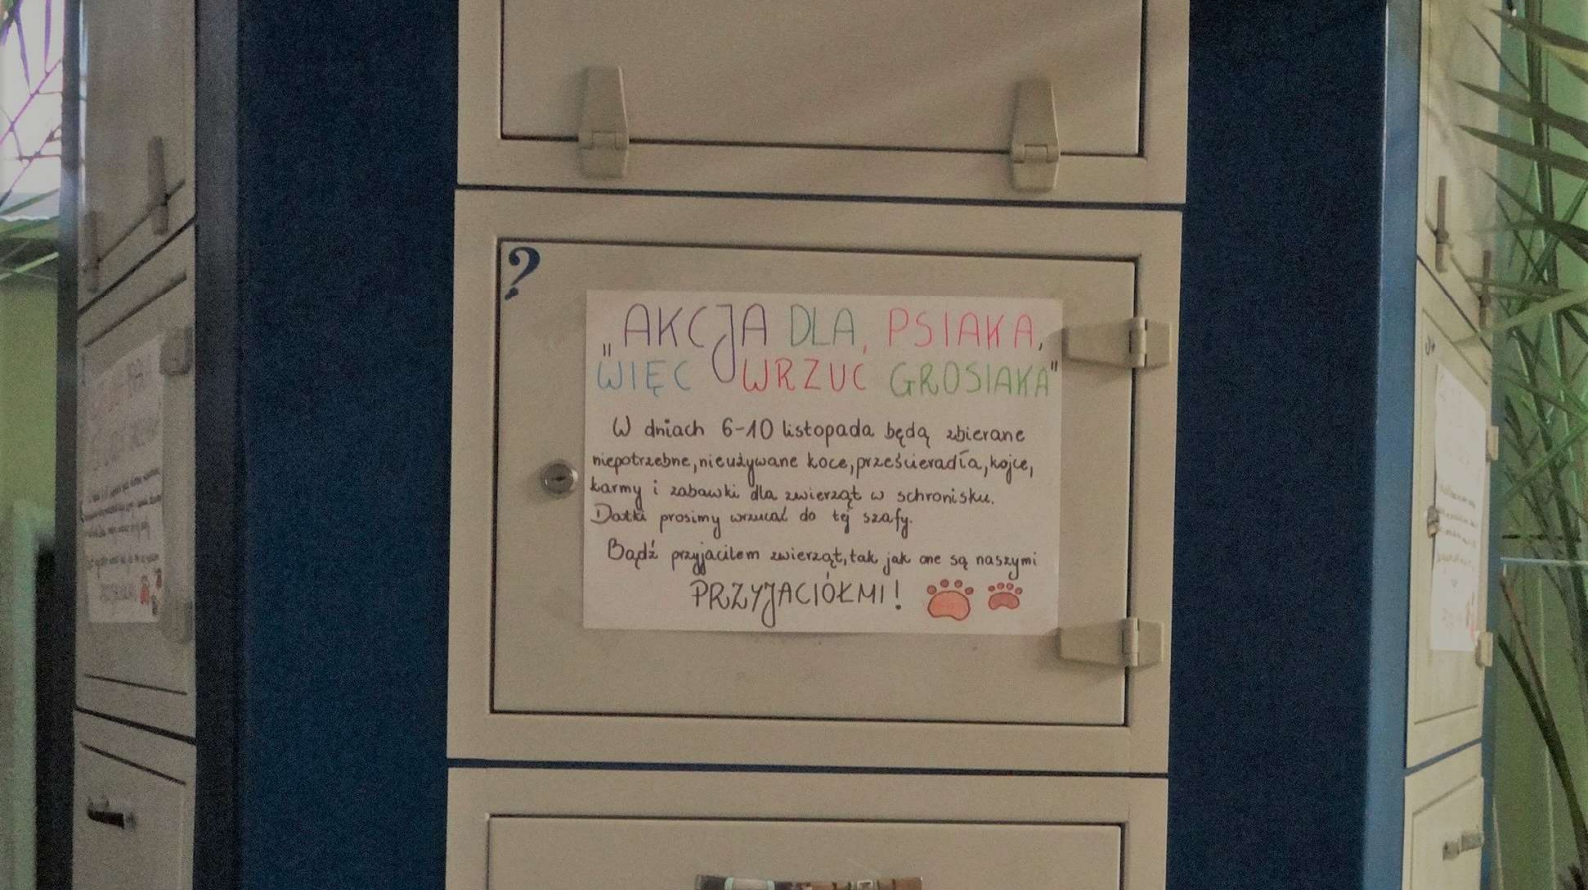 ?
„AKCJA DLA PSIAKA,
WIĘC WRZUĆ GROSIAKA"
W dniach 6-10 listopada będą zbierane
niepotrzebne, nieużywane koce, prześcieradła, kojce,
karmy i zabawki dla zwierząt w schronisku.
Datki prosimy wrzucać do tej szafy.
Bądź przyjacilem zwierząt, tak jak one są naszymi
PRZYJACIÓŁMI!